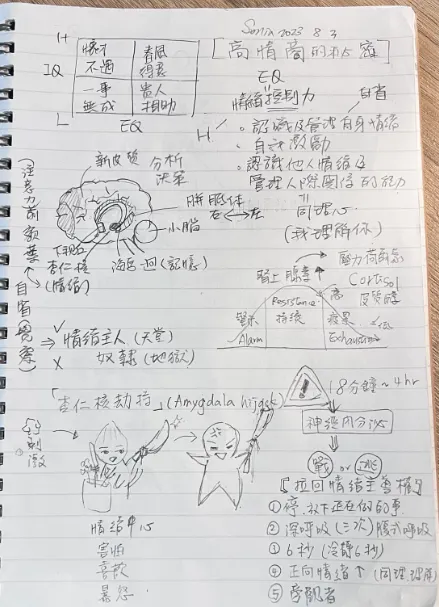 Sonia 2023 8 3
「高情商的祕密」
H
懷才不遇
春風得意
IQ
一事無成
貴人相助
L EQ H
EQ
情緒控制力
自省
。認識及管理自身情緒
。自我激勵
。認識他人情緒及
管理人際關係的能力
同理心
(我理解你)
新皮質 分析
決策
胼胝体
右 左
小腦
下視丘
杏仁核
(情緒)
海馬迴 (記憶)
自省(覺察)
✓ 情緒主人 (天堂)
X 奴隸 (地獄)
腎上腺素↑
壓力荷爾蒙
Cortisol
皮質醇
高
Resistance
持續
警示
Alarm
Exhaustion
「杏仁核劫持」(Amygdala hijack)
!
18分鐘~4hr
神經內分泌
戰 or 逃
刺激
情緒中心
害怕
喜歡
暴怒
『拉回情緒主導權』
① 停.
② 深呼吸 (三次) 腹式呼吸
③ 6秒 (冷靜6秒)
④ 正向情緒↑ (同理 理解)
⑤ 旁觀者